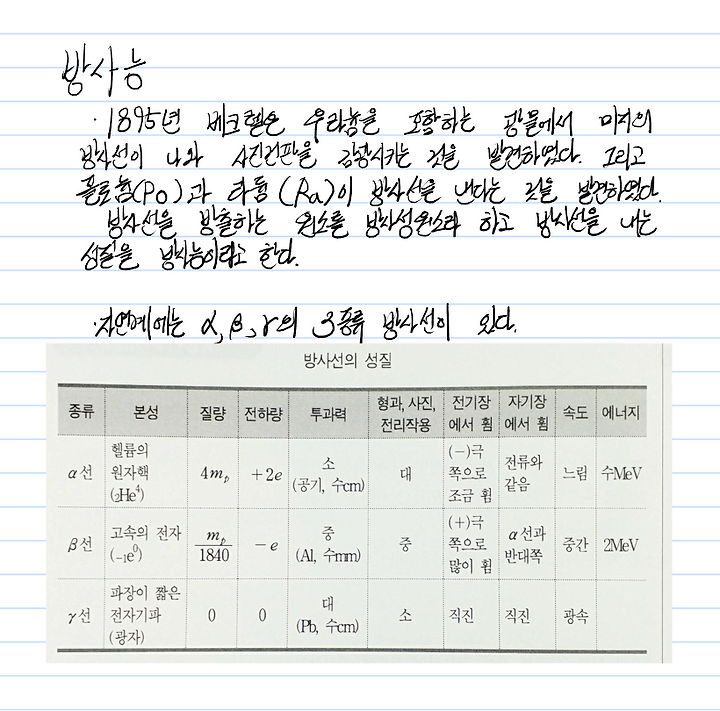 방사능
· 1895년 베크렐은 우라늄을 포함하는 광물에서 미지의
방사선이 나와 사진건판을 감광시키는 것을 발견하였다. 그리고
폴로늄(Po)과 라듐(Ra)이 방사선을 낸다는 것을 발견하였다.
방사선을 방출하는 원소를 방사성원소라 하고 방사선을 내는
성질을 방사능이라고 한다.
·자연계에는 α, β, γ의 3종류 방사선이 있다.
방사선의 성질
종류 본성 질량 전하량 투과력 형과, 사진, 전리작용 전기장에서 휨 자기장에서 휨 속도 에너지
α선 헬륨의 원자핵 (₂He⁴) 4mₚ +2e 소 (공기, 수cm) 대 (−)극 쪽으로 조금 휨 전류와 같음 느림 수MeV
β선 고속의 전자 (₋₁e⁰) mₚ/1840 −e 중 (Al, 수mm) 중 (+)극 쪽으로 많이 휨 α선과 반대쪽 중간 2MeV
γ선 파장이 짧은 전자기파 (광자) 0 0 대 (Pb, 수cm) 소 직진 직진 광속